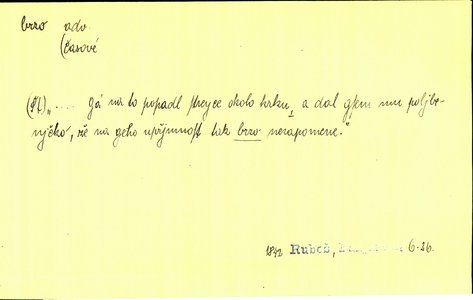 brzo adv.
(časové
(Št) „.... Gá na to popadl streyce okolo krku, a dal gsem mu poljbe-
njčko, že na geho upřjmnost tak brzo nezapomene."
1842 Rubeš, 6-26.